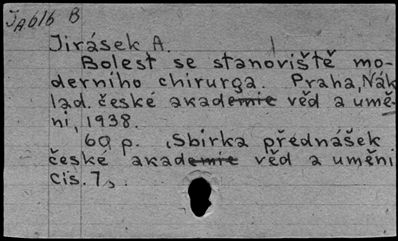 JA616 B
Jirásek A.
Bolest se stanoviště mo-
derního chirurga. Praha, Nák
lad. české akademie věd a umě-
ni, 1938.
60 p. (Sbírka přednášek
české akademie věd a uměni
cis. 7).